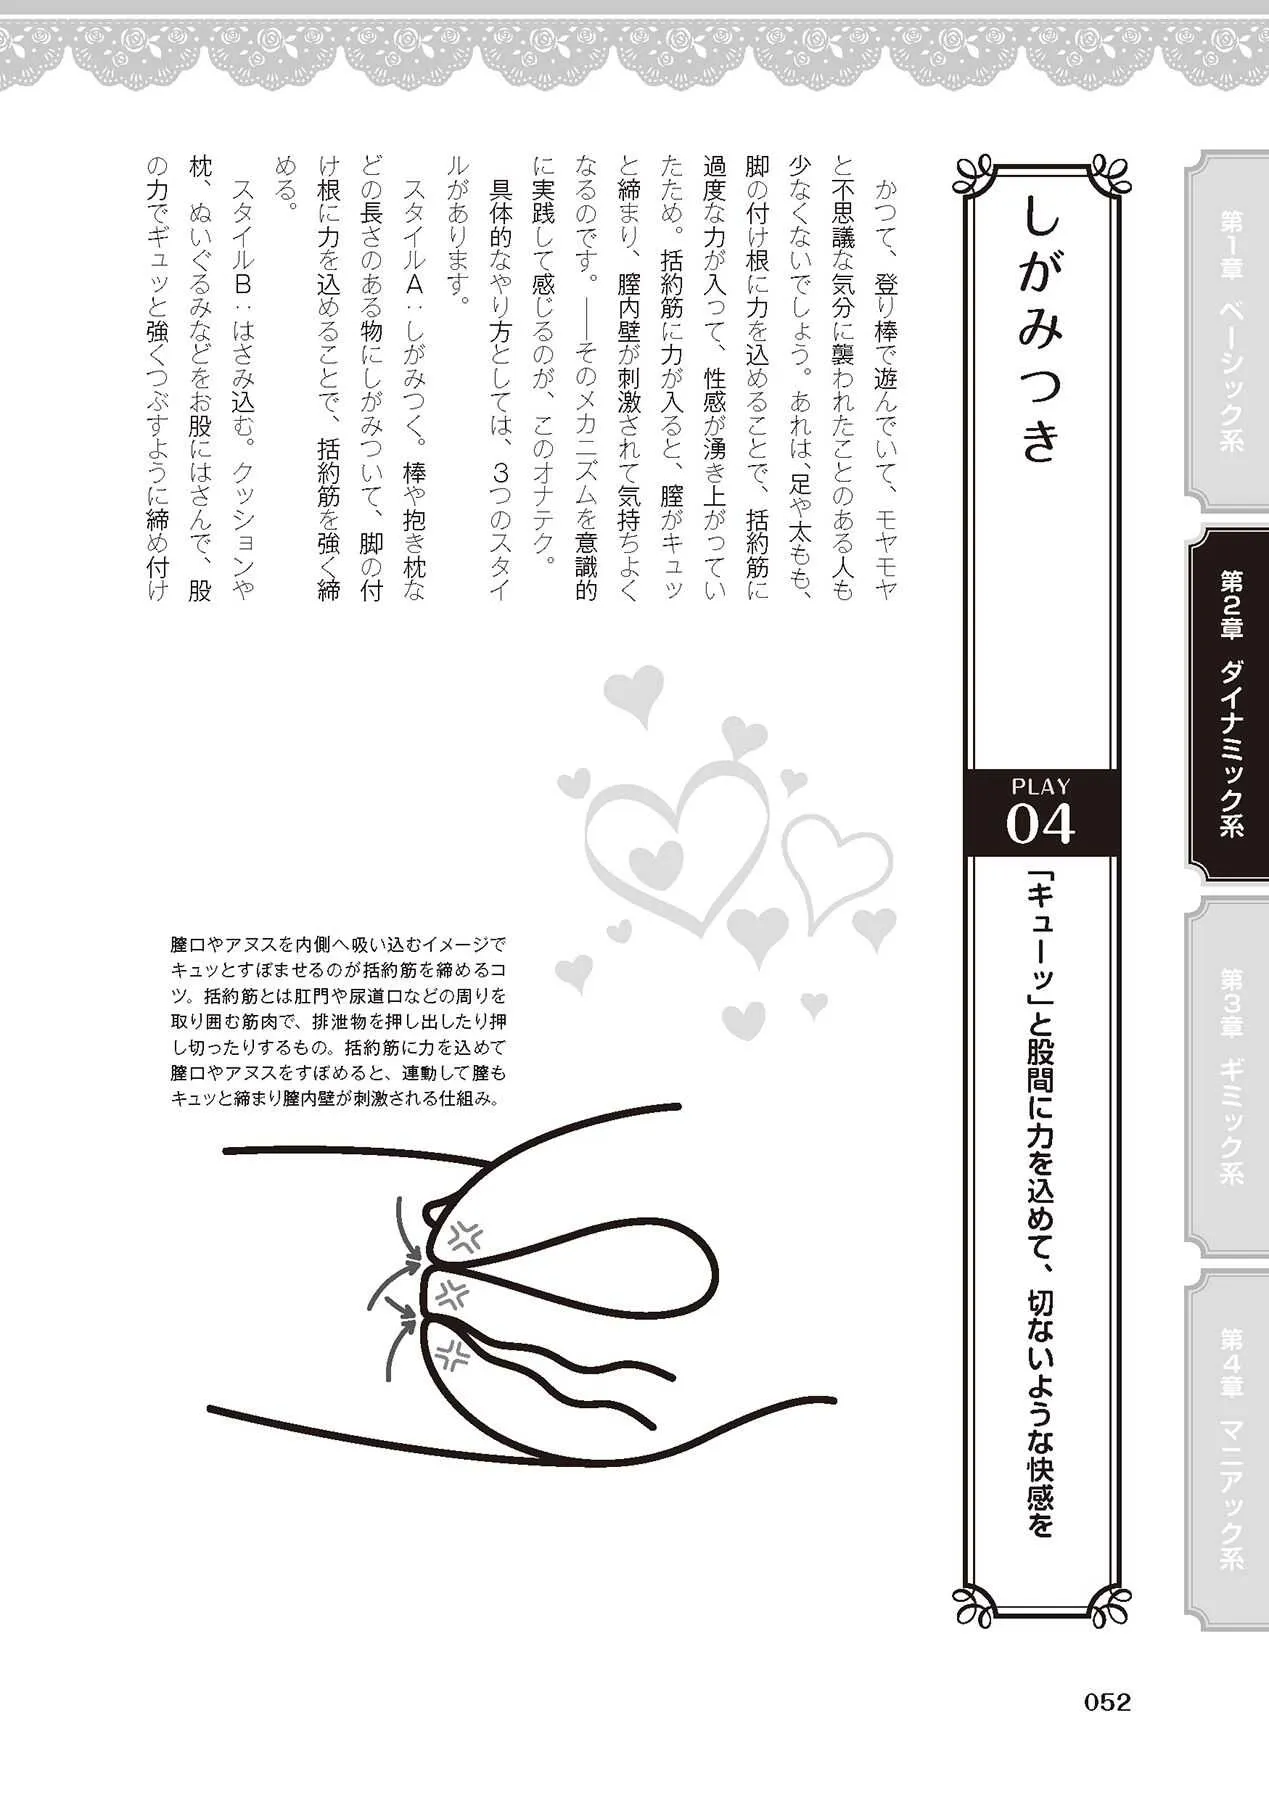 第1章 ベーシック系
第2章 ダイナミック系
第3章 ギミック系
第4章 マニアック系
しがみつき
PLAY
04
「キューッ」と股間に力を込めて、切ないような快感を
かつて、登り棒で遊んでいて、モヤモヤ
と不思議な気分に襲われたことのある人も
少なくないでしょう。あれは、足や太もも、
脚の付け根に力を込めることで、括約筋に
過度な力が入って、性感が湧き上がってい
たため。括約筋に力が入ると、膣がキュッ
と締まり、膣内壁が刺激されて気持ちよく
なるのです。――そのメカニズムを意識的
に実践して感じるのが、このオナテク。
具体的なやり方としては、3つのスタイ
ルがあります。
スタイルA：しがみつく。棒や抱き枕な
どの長さのある物にしがみついて、脚の付
け根に力を込めることで、括約筋を強く締
める。
スタイルB：はさみ込む。クッションや
枕、ぬいぐるみなどをお股にはさんで、股
の力でギュッと強くつぶすように締め付け
膣口やアヌスを内側へ吸い込むイメージで
キュッとすぼませるのが括約筋を締めるコ
ツ。括約筋とは肛門や尿道口などの周りを
取り囲む筋肉で、排泄物を押し出したり押
し切ったりするもの。括約筋に力を込めて
膣口やアヌスをすぼめると、連動して膣も
キュッと締まり膣内壁が刺激される仕組み。
052